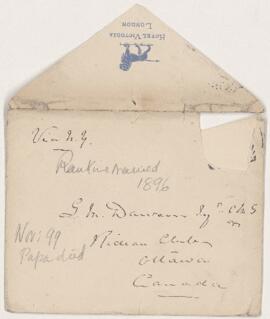 HOTEL VICTORIA
LONDON
Via N.Y.
Rankine married
1896
G. M. Dawson Esqr. C.M.G
Nov: 99
Papa died
Rideau Club
Ottawa
Canada